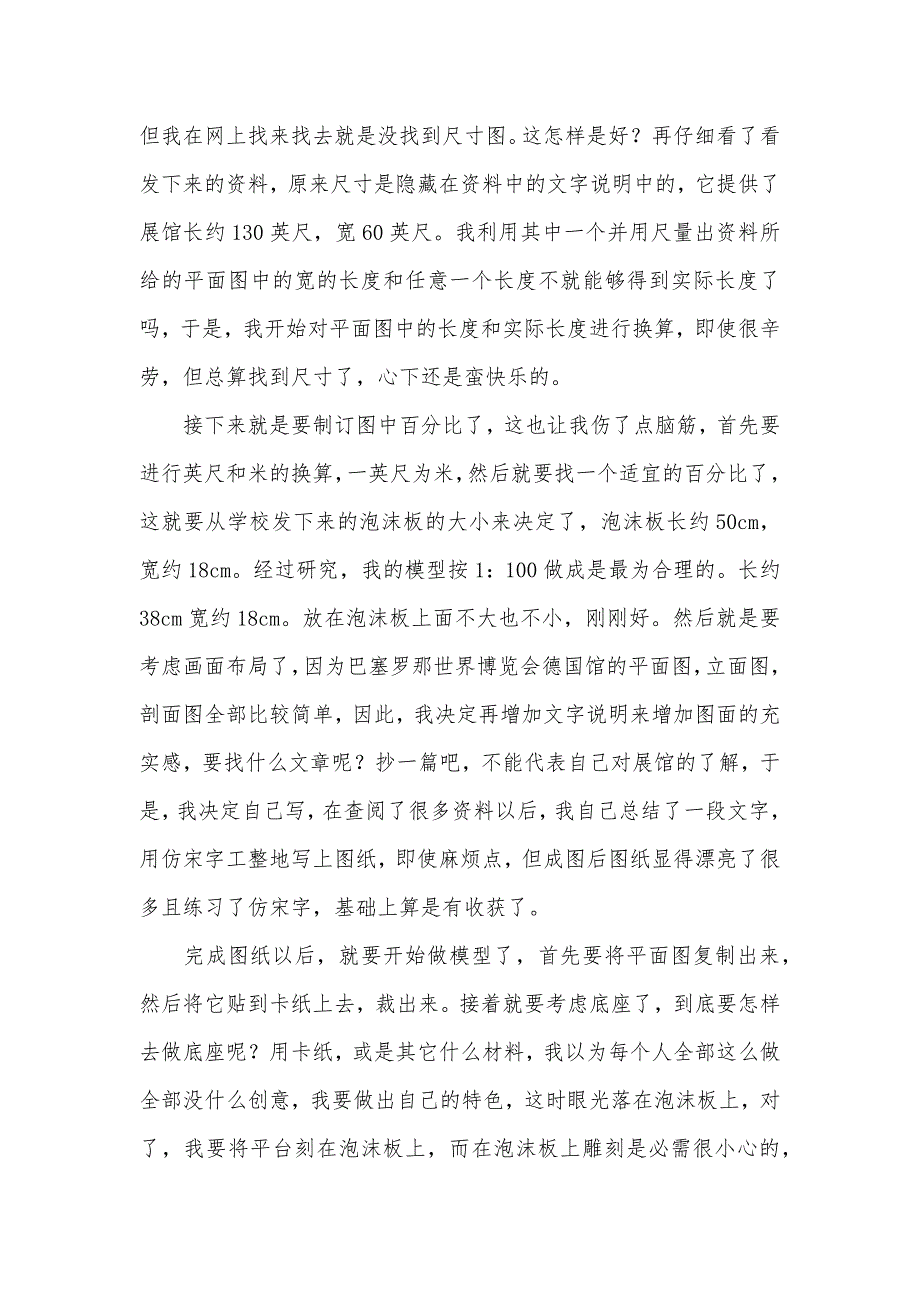 但我在网上找来找去就是没找到尺寸图。这怎样是好？再仔细看了看
发下来的资料，原来尺寸是隐藏在资料中的文字说明中的，它提供了
展馆长约 130 英尺，宽 60 英尺。我利用其中一个并用尺量出资料所
给的平面图中的宽的长度和任意一个长度不就能够得到实际长度了
吗，于是，我开始对平面图中的长度和实际长度进行换算，即使很辛
劳，但总算找到尺寸了，心下还是蛮快乐的。
接下来就是要制订图中百分比了，这也让我伤了点脑筋，首先要
进行英尺和米的换算，一英尺为米，然后就要找一个适宜的百分比了，
这就要从学校发下来的泡沫板的大小来决定了，泡沫板长约 50cm，
宽约 18cm。经过研究，我的模型按 1：100 做成是最为合理的。长约
38cm 宽约 18cm。放在泡沫板上面不大也不小，刚刚好。然后就是要
考虑画面布局了，因为巴塞罗那世界博览会德国馆的平面图，立面图，
剖面图全部比较简单，因此，我决定再增加文字说明来增加图面的充
实感，要找什么文章呢？抄一篇吧，不能代表自己对展馆的了解，于
是，我决定自己写，在查阅了很多资料以后，我自己总结了一段文字，
用仿宋字工整地写上图纸，即使麻烦点，但成图后图纸显得漂亮了很
多且练习了仿宋字，基础上算是有收获了。
完成图纸以后，就要开始做模型了，首先要将平面图复制出来，
然后将它贴到卡纸上去，裁出来。接着就要考虑底座了，到底要怎样
去做底座呢？用卡纸，或是其它什么材料，我以为每个人全部这么做
全部没什么创意，我要做出自己的特色，这时眼光落在泡沫板上，对
了，我要将平台刻在泡沫板上，而在泡沫板上雕刻是必需很小心的，